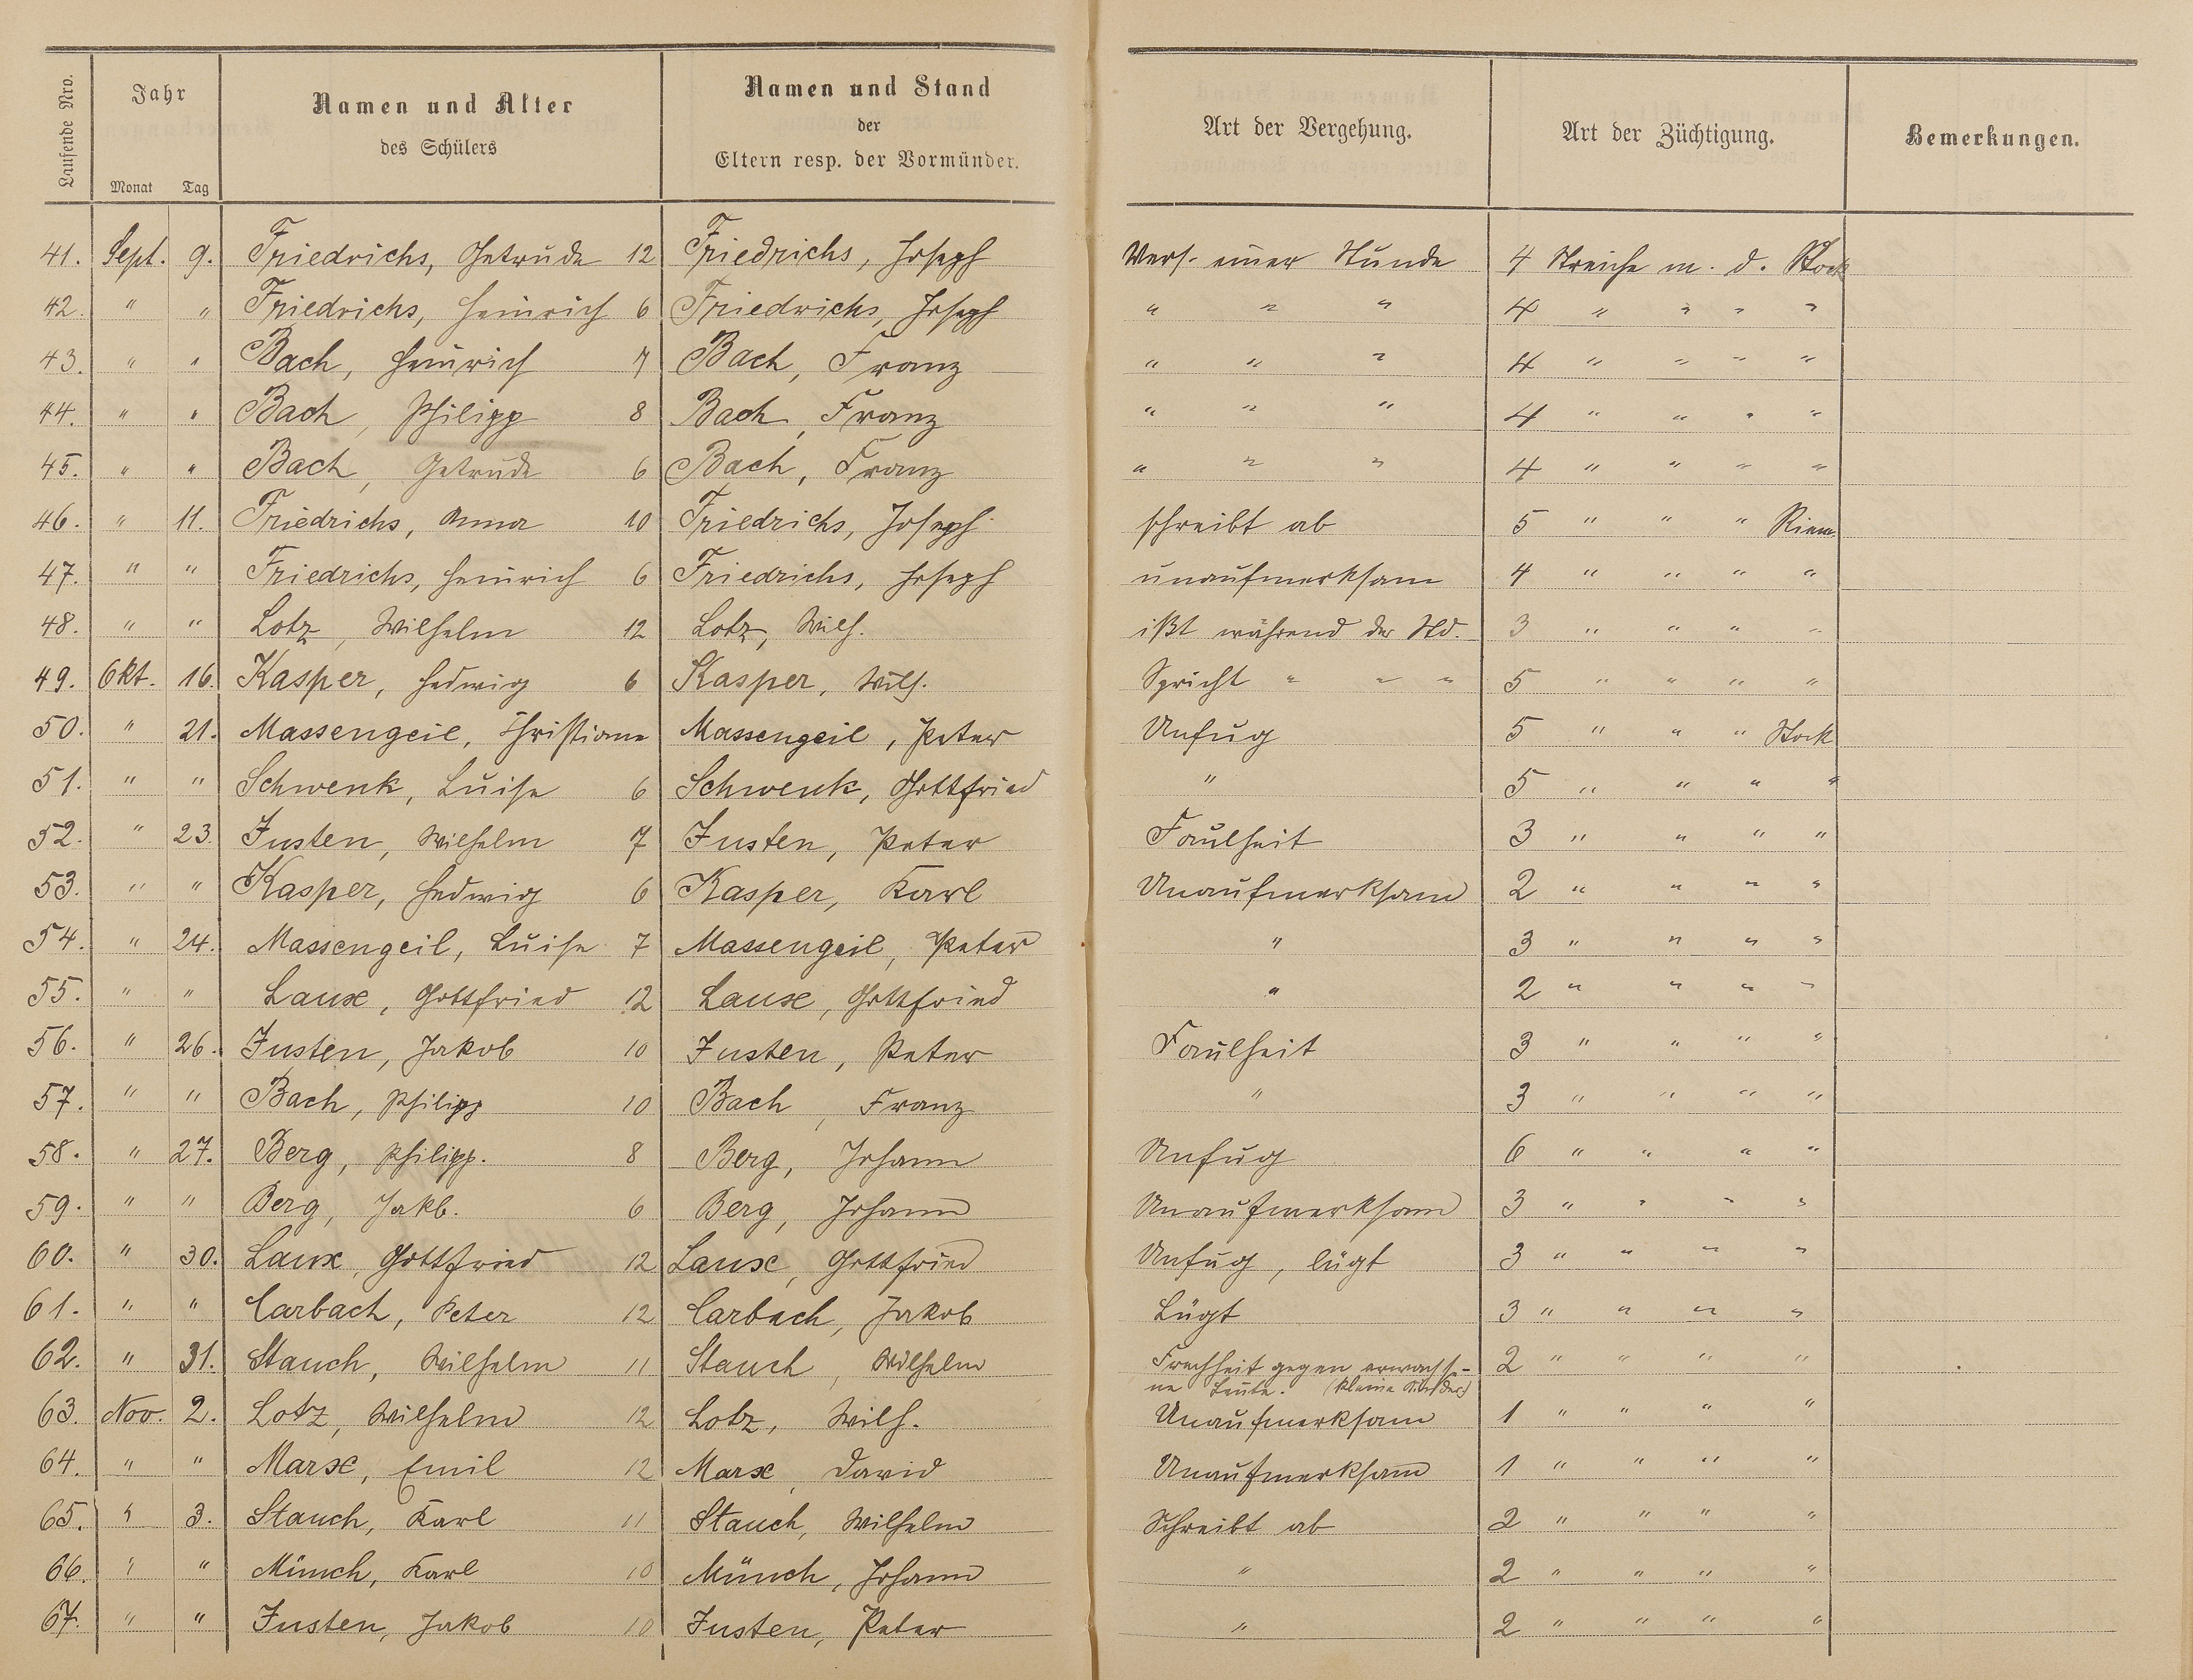 Laufende Nro. Jahr Monat Tag Namen und Alter des Schülers Namen und Stand der Eltern resp. der Vormünder. Art der Vergehung. Art der Züchtigung. Bemerkungen.
41. Sept. 9. Friedrichs, Getrude 12 Friedrichs, Joseph Vers. einer Stunde 4 Streiche m. d. Stock
42. " " Friedrichs, Heinrich 6 Friedrichs, Joseph " " " 4 " " " "
43. " " Bach, Heinrich 7 Bach, Franz " " " 4 " " " "
44. " " Bach, Philipp 8 Bach, Franz " " " 4 " " " "
45. " " Bach, Getrude 6 Bach, Franz " " " 4 " " " "
46. " 11. Friedrichs, Anna 10 Friedrichs, Joseph schreibt ab 5 " " " Riem
47. " " Friedrichs, Heinrich 6 Friedrichs, Joseph unaufmerksam 4 " " " "
48. " " Lotz, Wilhelm 12 Lotz, Wilh. ißt während der Std. 3 " " " "
49. Okt. 16. Kasper, Hedwig 6 Kasper, Wilh. Spricht " " " 5 " " " "
50. " 21. Massengeil, Christiane Massengeil, Peter Unfug 5 " " " Stock
51. " " Schwenk, Luise 6 Schwenk, Gottfried " 5 " " " "
52. " 23. Justen, Wilhelm 7 Justen, Peter Faulheit 3 " " " "
53. " " Kasper, Hedwig 6 Kasper, Karl Unaufmerksam 2 " " " "
54. " 24. Massengeil, Luise 7 Massengeil, Peter " 3 " " " "
55. " " Laux, Gottfried 12 Laux, Gottfried " 2 " " " "
56. " 26. Justen, Jakob 10 Justen, Peter Faulheit 3 " " " "
57. " " Bach, Philipp 10 Bach, Franz " 3 " " " "
58. " 27. Berg, Philipp. 8 Berg, Johann Unfug 6 " " " "
59. " " Berg, Jakb. 6 Berg, Johann Unaufmerksam 3 " " " "
60. " 30. Laux, Gottfried 12 Laux, Gottfried Unfug, lügt 3 " " " "
61. " " Carbach, Peter 12 Carbach, Jakob Lügt 3 " " " "
62. " 31. Stauch, Wilhelm 11 Stauch, Wilhelm Frechheit gegen erwachse- 2 " " " "
ne Leute. (kleine Kinder)
63. Nov. 2. Lotz, Wilhelm 12 Lotz, Wilh. Unaufmerksam 1 " " " "
64. " " Marx, Emil 12 Marx, David Unaufmerksam 1 " " " "
65. " 3. Stauch, Karl 11 Stauch, Wilhelm Schreibt ab 2 " " " "
66. " " Münch, Karl 10 Münch, Johann " 2 " " " "
67. " " Justen, Jakob 10 Justen, Peter " 2 " " " "